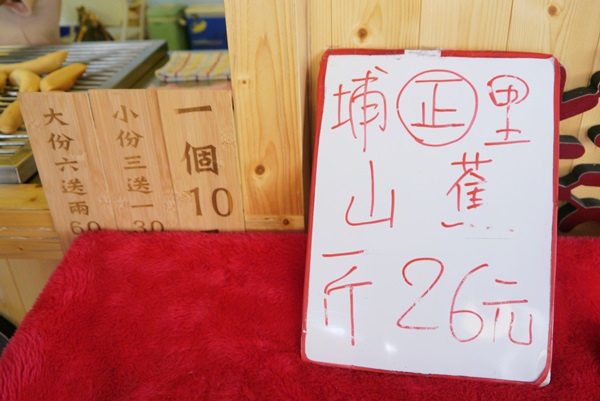 大份六送兩60
小份三送一30
一個10
埔㊣里
山蕉
一斤26元